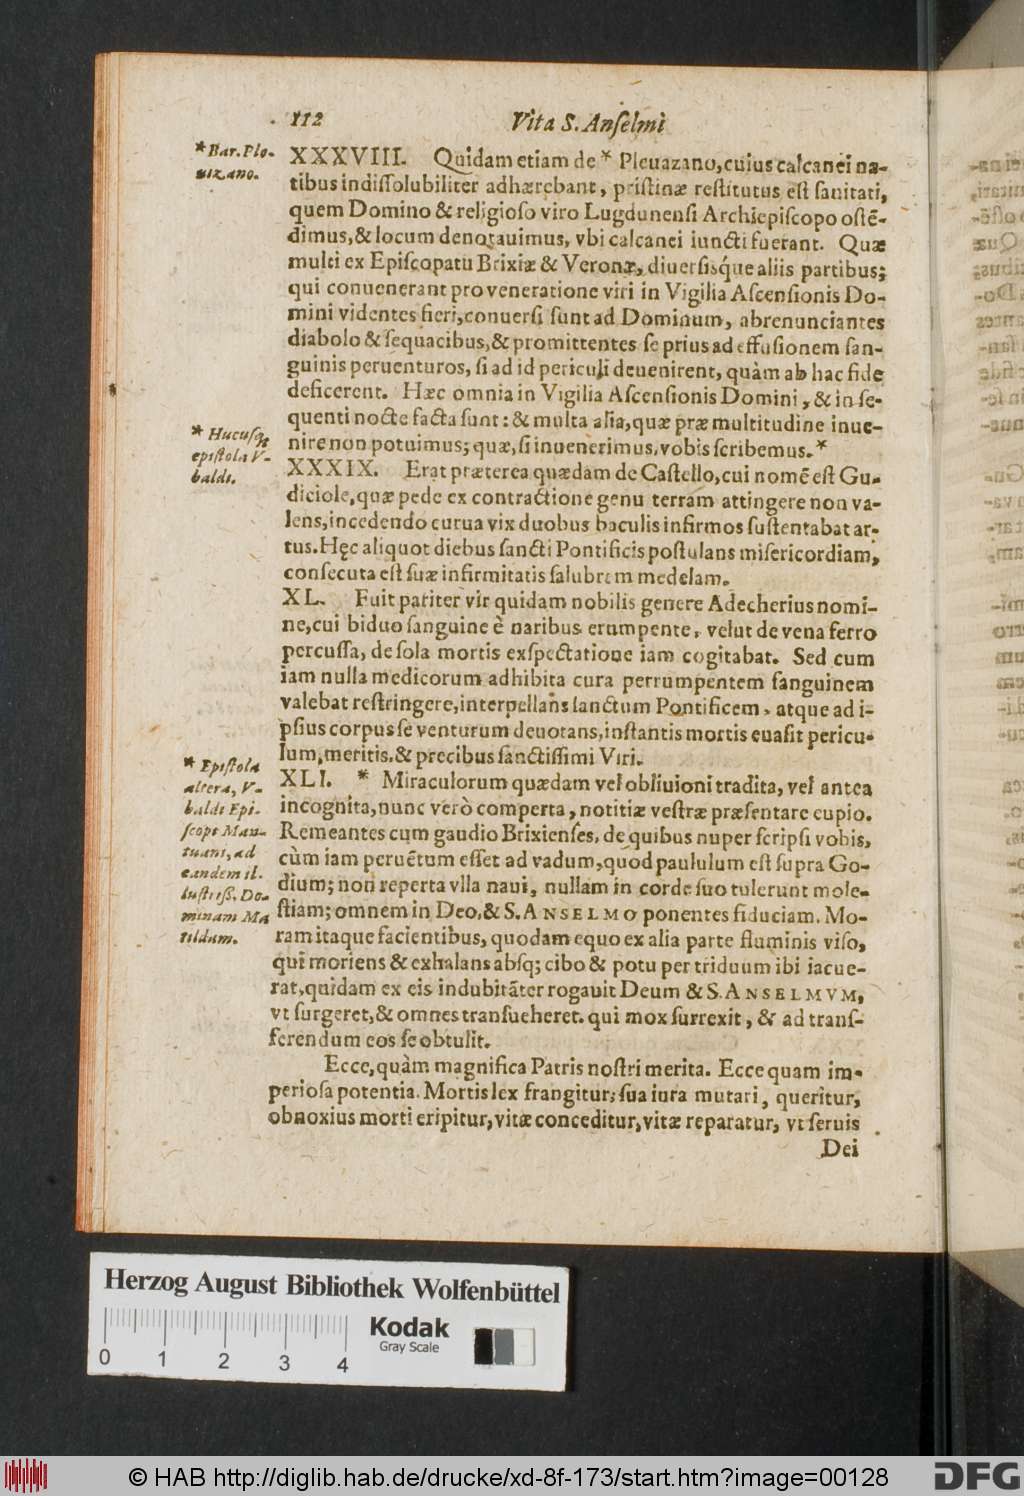 112
Vita S. Anſelmi
* Bar. Plo-
uizano.
XXXVIII. Quidam etiam de * Pleuazano, cuius calcanei na-
tibus indiſſolubiliter adhærebant, priſtinæ reſtitutus eſt ſanitati,
quem Domino & religioſo viro Lugdunenſi Archiepiſcopo oſtē-
dimus, & locum denotauimus, vbi calcanei iuncti fuerant. Quæ
multi ex Epiſcopatu Brixiæ & Veronæ, diuerſisq́ue aliis partibus;
qui conuenerant pro veneratione viri in Vigilia Aſcenſionis Do-
mini videntes fieri, conuerſi ſunt ad Dominum, abrenunciantes
diabolo & ſequacibus, & promittentes ſe prius ad effuſionem ſan-
guinis peruenturos, ſi ad id periculi deuenirent, quàm ab hac fide
deficerent. Hæc omnia in Vigilia Aſcenſionis Domini, & in ſe-
quenti nocte facta ſunt: & multa alia, quæ præ multitudine inue-
nire non potuimus; quæ, ſi inuenerimus, vobis ſcribemus. *
* Hucuſq́;
epiſtola V-
baldi.
XXXIX. Erat præterea quædam de Caſtello, cui nomē eſt Gu-
diciole, quæ pede ex contractione genu terram attingere non va-
lens, incedendo curua vix duobus baculis infirmos ſuſtentabat ar-
tus. Hęc aliquot diebus ſancti Pontificis poſtulans miſericordiam,
conſecuta eſt ſuæ infirmitatis ſalubrem medelam.
XL. Fuit pariter vir quidam nobilis genere Adecherius nomi-
ne, cui biduo ſanguine è naribus erumpente, velut de vena ferro
percuſſa, de ſola mortis exſpectatione iam cogitabat. Sed cum
iam nulla medicorum adhibita cura perrumpentem ſanguinem
valebat reſtringere, interpellans ſanctum Pontificem, atque ad i-
pſius corpus ſe venturum deuotans, inſtantis mortis euaſit pericu-
lum, meritis. & precibus ſanctiſſimi Viri.
* Epiſtola
altera, V-
baldi Epi-
ſcopi Man-
tuani, ad
eandem il-
luſtriß. Do-
minam Ma
tildam.
XLI. * Miraculorum quædam vel obliuioni tradita, vel antea
incognita, nunc verò comperta, notitiæ veſtræ præſentare cupio.
Remeantes cum gaudio Brixienſes, de quibus nuper ſcripſi vobis,
cùm iam peruētum eſſet ad vadum, quod paululum eſt ſupra Go-
dium; non reperta vlla naui, nullam in corde ſuo tulerunt mole-
ſtiam; omnem in Deo, & S. ANSELMO ponentes fiduciam. Mo-
ram itaque facientibus, quodam equo ex alia parte fluminis viſo,
qui moriens & exhalans abſq; cibo & potu per triduum ibi iacue-
rat, quidam ex eis indubitāter rogauit Deum & S. ANSELMVM,
vt ſurgeret, & omnes tranſueheret. qui mox ſurrexit, & ad tranſ-
ferendum eos ſe obtulit.
Ecce, quàm magnifica Patris noſtri merita. Ecce quam im-
perioſa potentia. Mortis lex frangitur; ſua iura mutari, queritur,
obnoxius morti eripitur, vitæ conceditur, vitæ reparatur, vt ſeruis
Dei
Herzog August Bibliothek Wolfenbüttel
0 1 2 3 4
Kodak
Gray Scale
© HAB http://diglib.hab.de/drucke/xd-8f-173/start.htm?image=00128
DFG